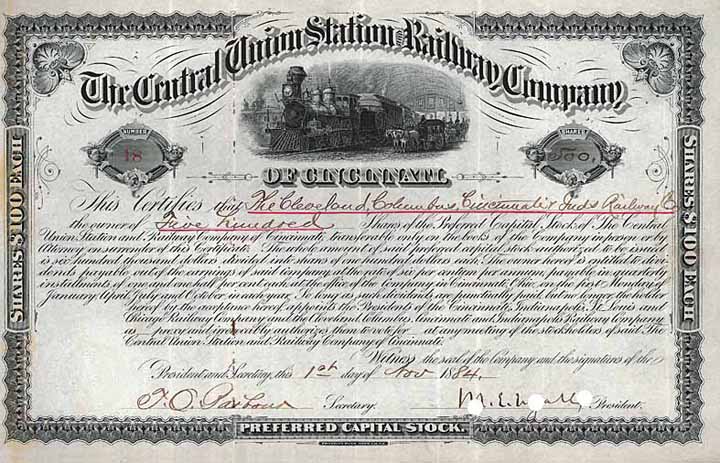 The Central Union Station and Railway Company
OF CINCINNATI.
NUMBER
18
SHARES
500.
SHARES $100 EACH
SHARES $100 EACH
This Certifies that The Cleveland Columbus Cincinnati & Ind's Railway Co
the owner of Five Hundred Shares of the Preferred Capital Stock of The Central
Union Station and Railway Company of Cincinnati, transferable only on the books of the Company in person or by
Attorney on surrender of this Certificate. The whole amount of said preferred capital stock, authorized to be issued
is six hundred thousand dollars divided into shares of one hundred dollars each. The owner hereof is entitled to divi-
dends payable out of the earnings of said Company, at the rate of six per centum per annum, payable in quarterly
instalments of one and one half per cent each, at the office of the Company in Cincinnati, Ohio, on the first Monday of
January, April, July and October, in each year. So long as such dividends are punctually paid, but no longer, the holder
hereof by the acceptance hereof appoints the Presidents of the Cincinnati, Indianapolis, St. Louis and
Chicago Railway Company and the Cleveland, Columbus, Cincinnati and Indianapolis Railway Company
as proxy and irrevocably authorizes them to vote for at any meeting of the stockholders of said The
Central Union Station and Railway Company of Cincinnati.
Witness the seal of the Company and the signatures of the
President and Secretary, this 1st day of Nov 1884.
Secretary.
M. E. President.
PREFERRED CAPITAL STOCK.